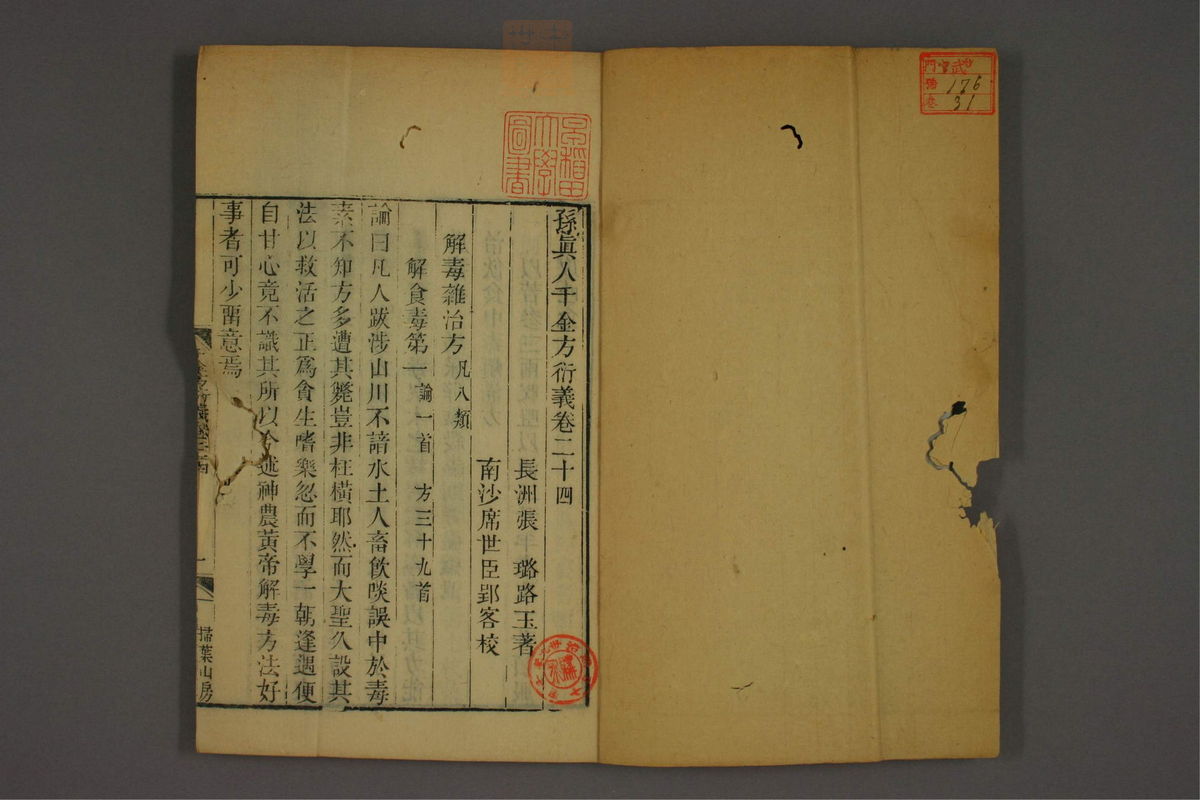 孫眞人千金方衍義卷二十四
長洲張 璐路玉著
南沙席世臣郢客校
解毒雜治方凡八類
解食毒第一論一首 方三十九首
論曰凡人跋涉山川不諳水土人畜飲啖誤中於毒
素不知方多遭其斃豈非枉橫耶然而大聖久設其
法以救活之正爲貪生嗜樂忽而不學一朝逢遇便
自甘心竟不識其所以今述神農黃帝解毒方法好
事者可少畱意焉
掃葉山房
早稻田大學圖書
176
31